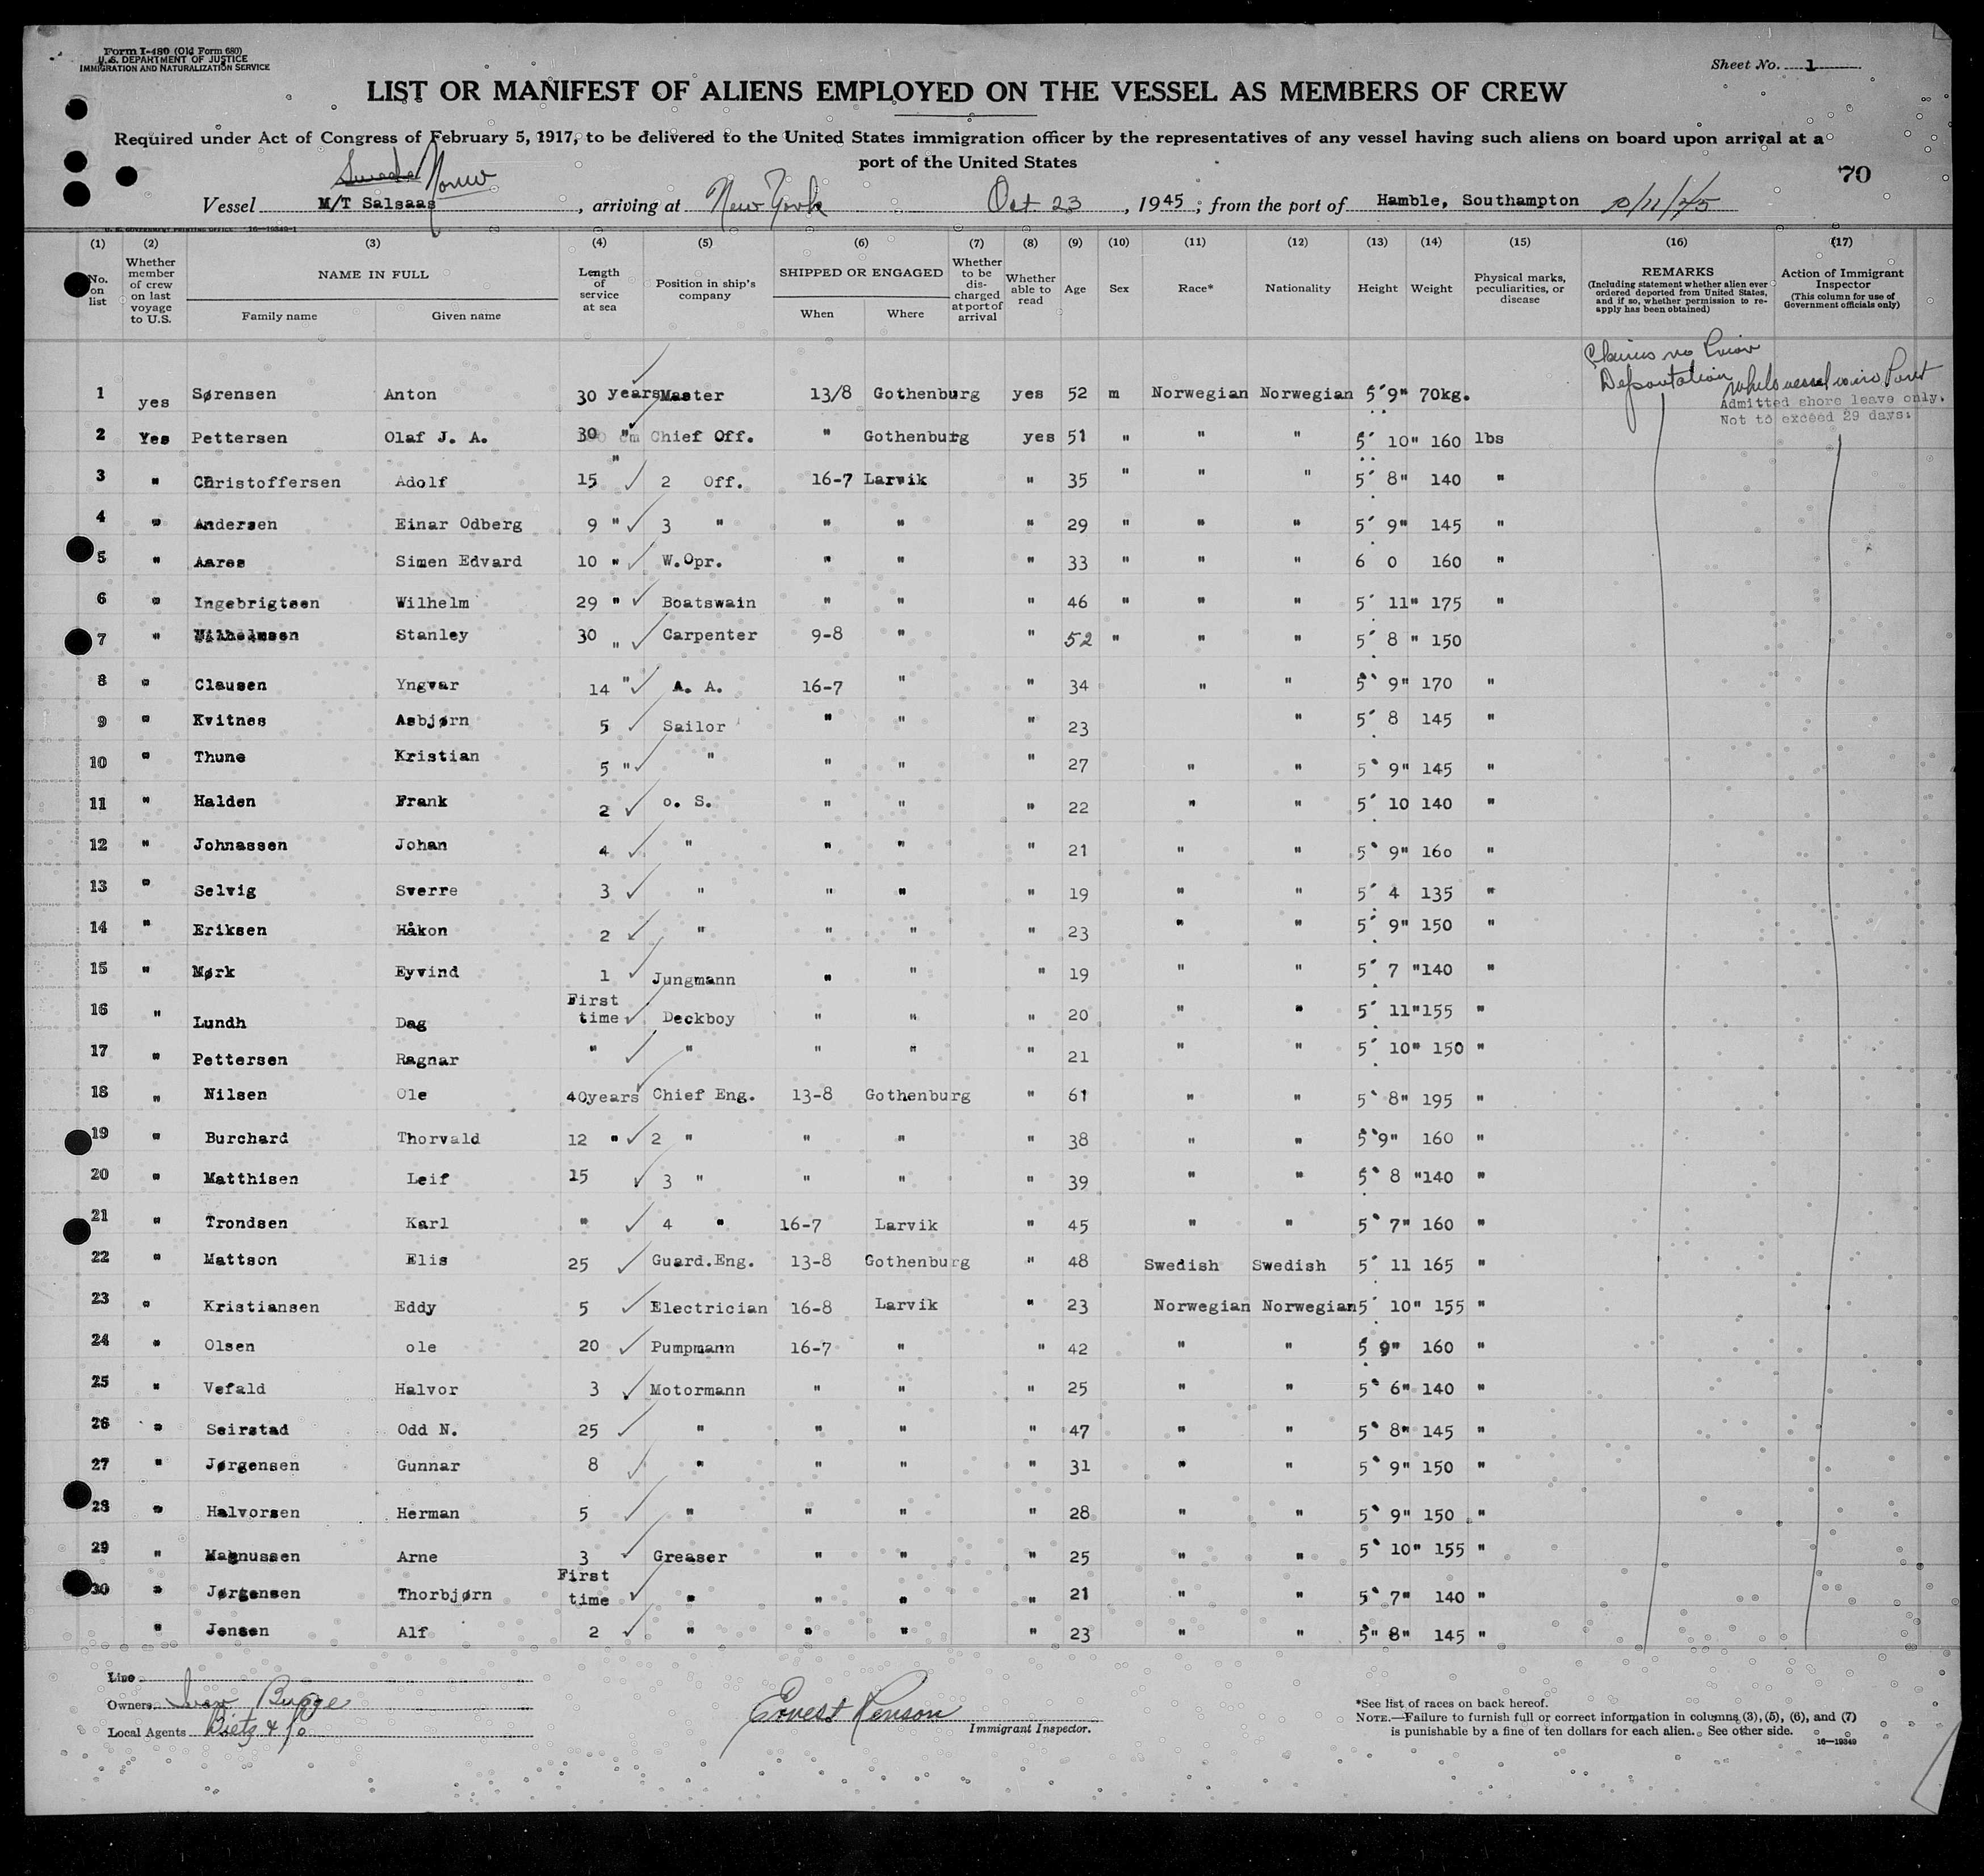 Form I-480 (Old Form 680)
U. S. DEPARTMENT OF JUSTICE
IMMIGRATION AND NATURALIZATION SERVICE
Sheet No. 1
LIST OR MANIFEST OF ALIENS EMPLOYED ON THE VESSEL AS MEMBERS OF CREW
Required under Act of Congress of February 5, 1917, to be delivered to the United States immigration officer by the representatives of any vessel having such aliens on board upon arrival at a
port of the United States
70
Vessel M/T Salsaas, arriving at New York Oct 23, 1945; from the port of Hamble, Southampton 10/11/45
U. S. GOVERNMENT PRINTING OFFICE 16—19349-1
(1) (2) (3) (4) (5) (6) (7) (8) (9) (10) (11) (12) (13) (14) (15) (16) (17)
No. on list Whether member of crew on last voyage to U.S. NAME IN FULL Family name Given name Length of service at sea Position in ship's company SHIPPED OR ENGAGED When Where Whether to be discharged at port of arrival Whether able to read Age Sex Race* Nationality Height Weight Physical marks, peculiarities, or disease REMARKS (Including statement whether alien ever ordered deported from United States, and if so, whether permission to re-apply has been obtained) Action of Immigrant Inspector (This column for use of Government officials only)
Claims no Prior
Deportation While vessel is in Port
Admitted shore leave only.
Not to exceed 29 days.
1 yes Sørensen Anton 30 years Master 13/8 Gothenburg yes 52 m Norwegian Norwegian 5' 9" 70kg.
2 Yes Pettersen Olaf J. A. 30 " Chief Off. " Gothenburg yes 51 " " " 5' 10" 160 lbs
3 " Christoffersen Adolf 15 " 2 Off. 16-7 Larvik " 35 " " " 5' 8" 140 "
4 " Andersen Einar Odberg 9 " 3 " " " " 29 " " " 5' 9" 145 "
5 " Aares Simen Edvard 10 " W.Opr. " " " 33 " " " 6 0 160 "
6 " Ingebrigtsen Wilhelm 29 " Boatswain " " " 46 " " " 5' 11" 175 "
7 " Wilhelmsen Stanley 30 " Carpenter 9-8 " " 52 " " " 5' 8 " 150
8 " Clausen Yngvar 14 " A. A. 16-7 " " 34 " " 5' 9" 170 "
9 " Kvitnes Asbjørn 5 Sailor " " " 23 " 5' 8 145 "
10 " Thune Kristian 5 " " " " " 27 " " 5' 9" 145 "
11 " Halden Frank 2 o. S. " " " 22 " " 5' 10 140 "
12 " Johnassen Johan 4 " " " " 21 " " 5' 9" 160 "
13 " Selvig Sverre 3 " " " " 19 " " 5' 4 135 "
14 " Eriksen Håkon 2 " " " " 23 " " 5' 9" 150 "
15 " Mørk Eyvind 1 Jungmann " " " 19 " " 5' 7 "140 "
16 " Lundh Dag First time Deckboy " " " 20 " " 5' 11"155 "
17 " Pettersen Ragnar " " " " " 21 " " 5' 10" 150 "
18 " Nilsen Ole 40years Chief Eng. 13-8 Gothenburg " 61 " " 5' 8" 195 "
19 " Burchard Thorvald 12 " 2 " " " " 38 " " 5'9" 160 "
20 " Matthisen Leif 15 3 " " " " 39 " " 5' 8 "140 "
21 " Trondsen Karl " 4 " 16-7 Larvik " 45 " " 5' 7" 160 "
22 " Mattson Elis 25 Guard.Eng. 13-8 Gothenburg " 48 Swedish Swedish 5' 11 165 "
23 " Kristiansen Eddy 5 Electrician 16-8 Larvik " 23 Norwegian Norwegian 5' 10" 155 "
24 " Olsen ole 20 Pumpmann 16-7 " " 42 " " 5 9" 160 "
25 " Vefald Halvor 3 Motormann " " " 25 " " 5' 6" 140 "
26 " Seirstad Odd N. 25 " " " " 47 " " 5' 8" 145 "
27 " Jørgensen Gunnar 8 " " " " 31 " " 5' 9" 150 "
28 " Halvorsen Herman 5 " " " " 28 " " 5' 9" 150 "
29 " Magnussen Arne 3 Greaser " " " 25 " " 5' 10" 155 "
30 " Jørgensen Thorbjørn First time " " " " 21 " " 5' 7" 140 "
" Jensen Alf 2 " " " " 23 " " 5" 8" 145 "
Line
Owners Ivar Bugge
Local Agents Bietz & Co
Ernest Renson
Immigrant Inspector.
*See list of races on back hereof.
NOTE.—Failure to furnish full or correct information in columns (3), (5), (6), and (7)
is punishable by a fine of ten dollars for each alien. See other side.
16—19349